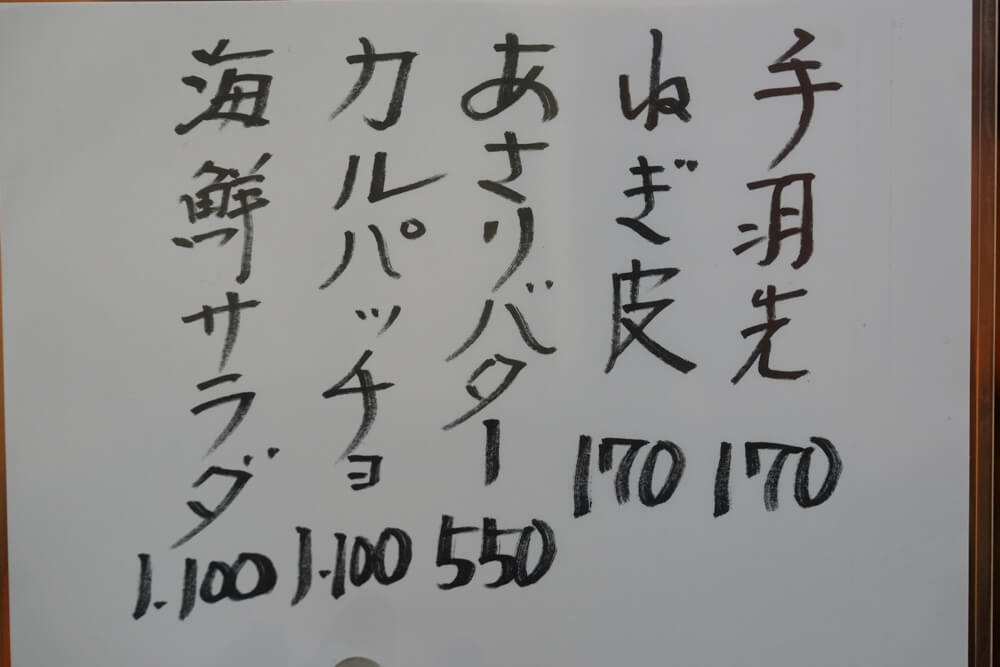 手羽先 170
ねぎ皮 170
あさりバター 550
カルパッチョ 1.100
海鮮サラダ 1.100